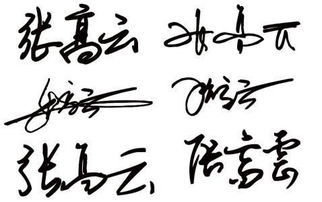 张高云 张高云
张高云 张高云
张高云 張高雲